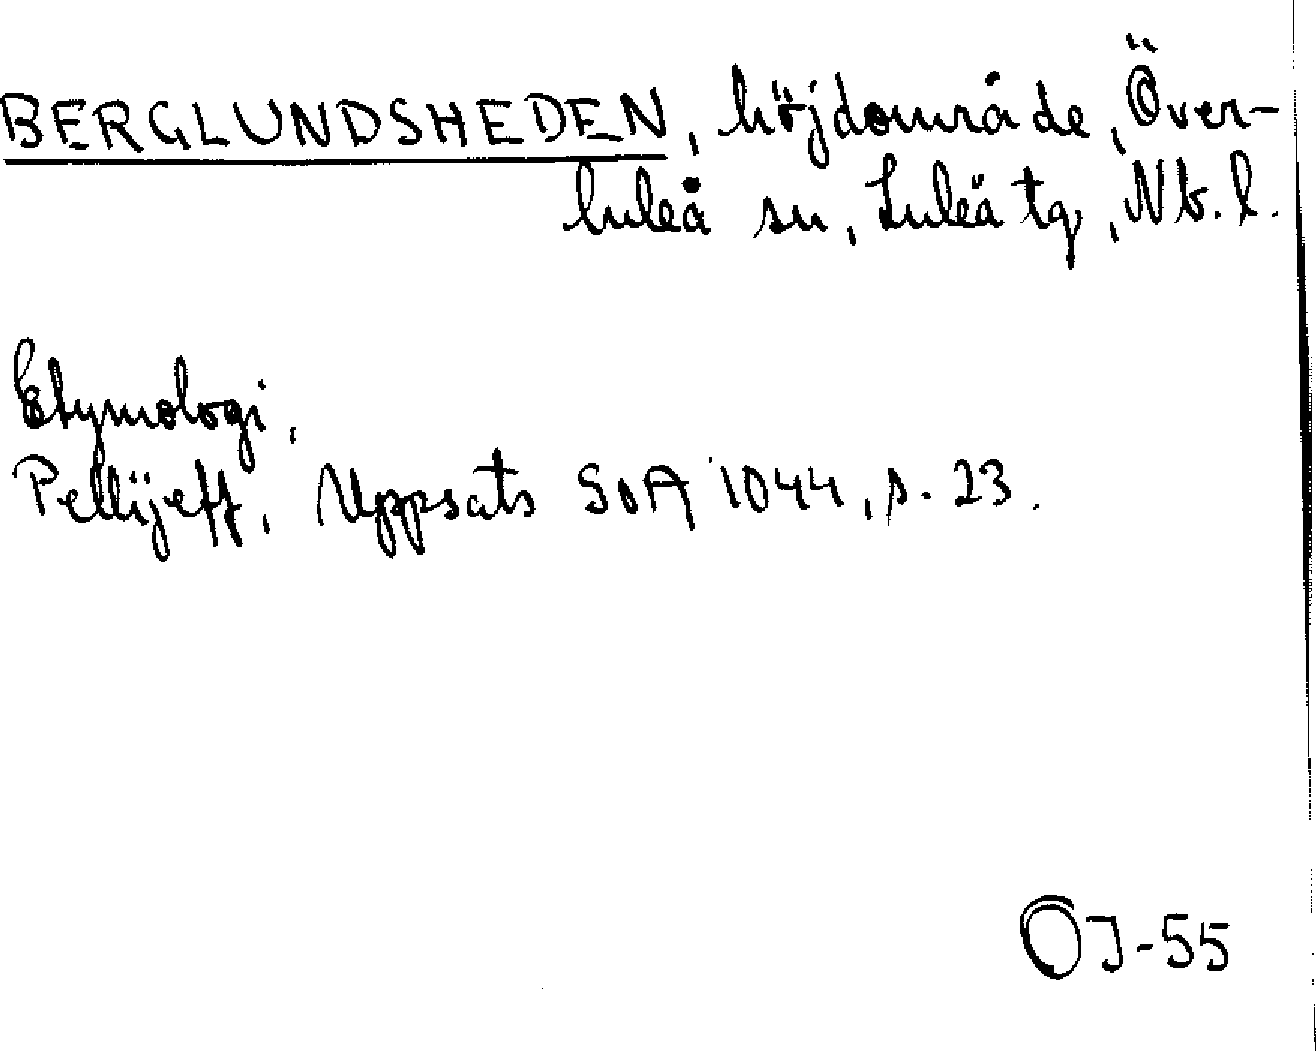 BERGLUNDSHEDEN, höjdområde, Över-
luleå sn, Luleå tg, Nb. l.
Etymologi.
Pellijeff, Uppsats SOA 1044, s. 23.
OJ-55